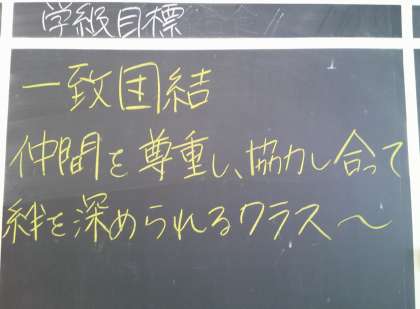 学級目標
一致団結
仲間を尊重し、協力し合って
絆を深められるクラス～